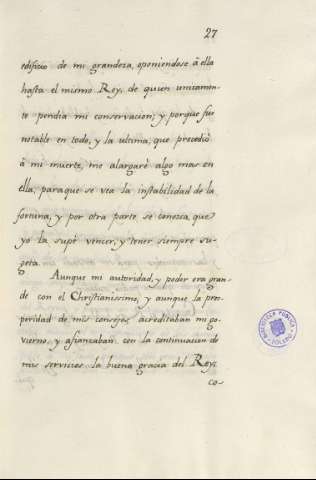 27
edificio de mi grandeza, oponiendose â ella
hasta el mismo Rey, de quien unicamen-
te pendia mi conservacion; y porque fue
notable en todo, y la ultima, que precediò
â mi muerte, me alargarè algo mas en
ella, paraque se vea la instabilidad de la
fortuna, y por otra parte se conozca, que
yo la supè vencer, y tener siempre su-
geta.
Aunque mi autoridad, y poder era gran-
de con el Christianissimo, y aunque la pros-
peridad de mis consejos acreditaban mi go-
vierno, y afianzaban con la continuacion de
mis servicios la buena gracia del Rey;
co-
BIBLIOTECA PUBLICA
TOLEDO